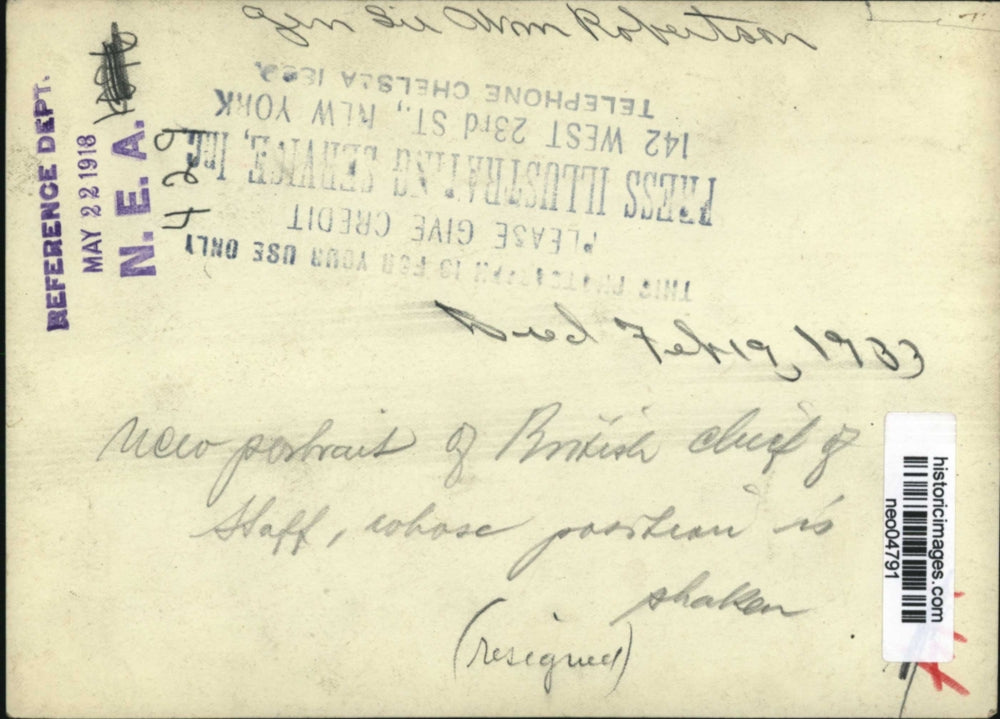 Gen Sir Wm Robertson
REFERENCE DEPT.
MAY 22 1918
N. E. A.
429
THIS PHOTOGRAPH IS FOR YOUR USE ONLY
PLEASE GIVE CREDIT
PRESS ILLUSTRATING SERVICE, Inc.
142 WEST 23rd ST., NEW YORK
TELEPHONE CHELSEA
Died Feb 19, 1933
New portrait of British chief of
Staff, whose position is
shaken
(resigned)
historicimages.com
neo04791